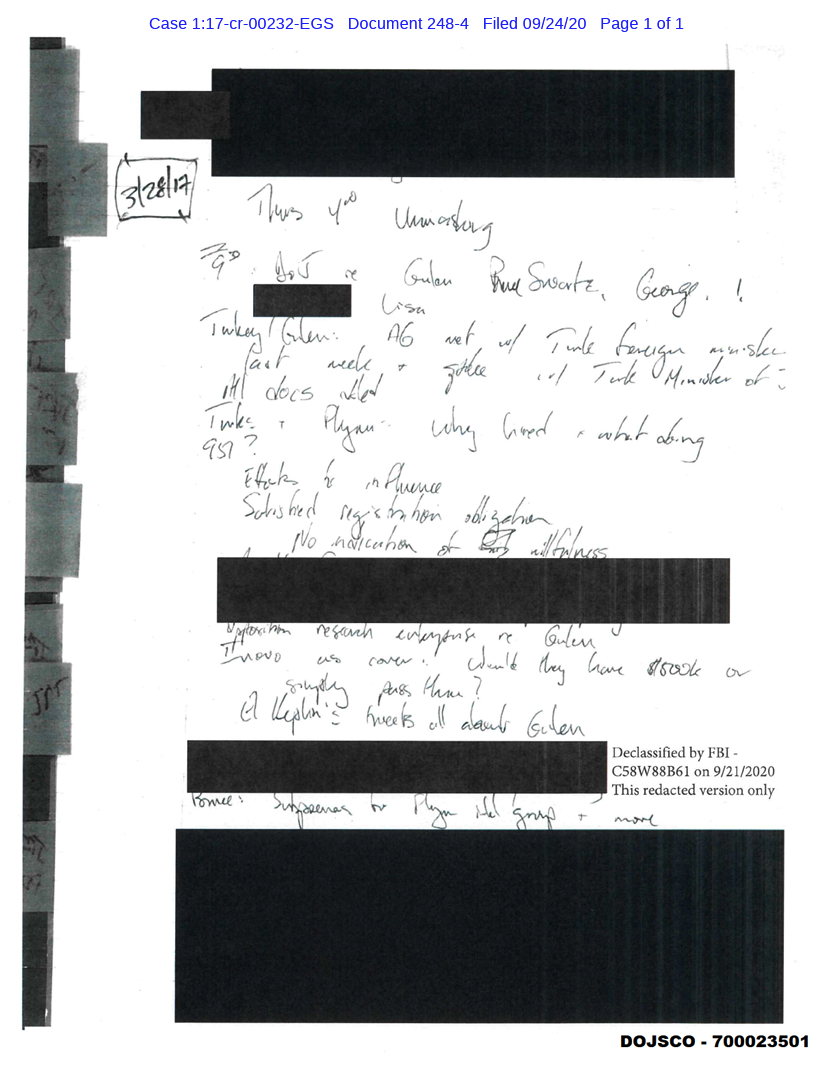 Case 1:17-cr-00232-EGS Document 248-4 Filed 09/24/20 Page 1 of 1
3/28/17
Thurs 4:00 Unmasking
9:30 : DoJ re Gulen Bruce Swartz, George, !
Lisa
Turkey / Gulen: AG met w/ Turk foreign minister
last week + w/ Turk Minister of
All docs
Turks + Flynn: Why hired + what doing
951?
Efforts to influence
Satisfied registration obligation
No indication of willfulness
Opposition research enterprise re Gulen
Inovo as cover? Would they have $500k or
simply pass thru?
tweets all about Gulen
Declassified by FBI -
C58W88B61 on 9/21/2020
This redacted version only
Bruce: Subpoenas for Flynn Intel group + more
DOJSCO - 700023501